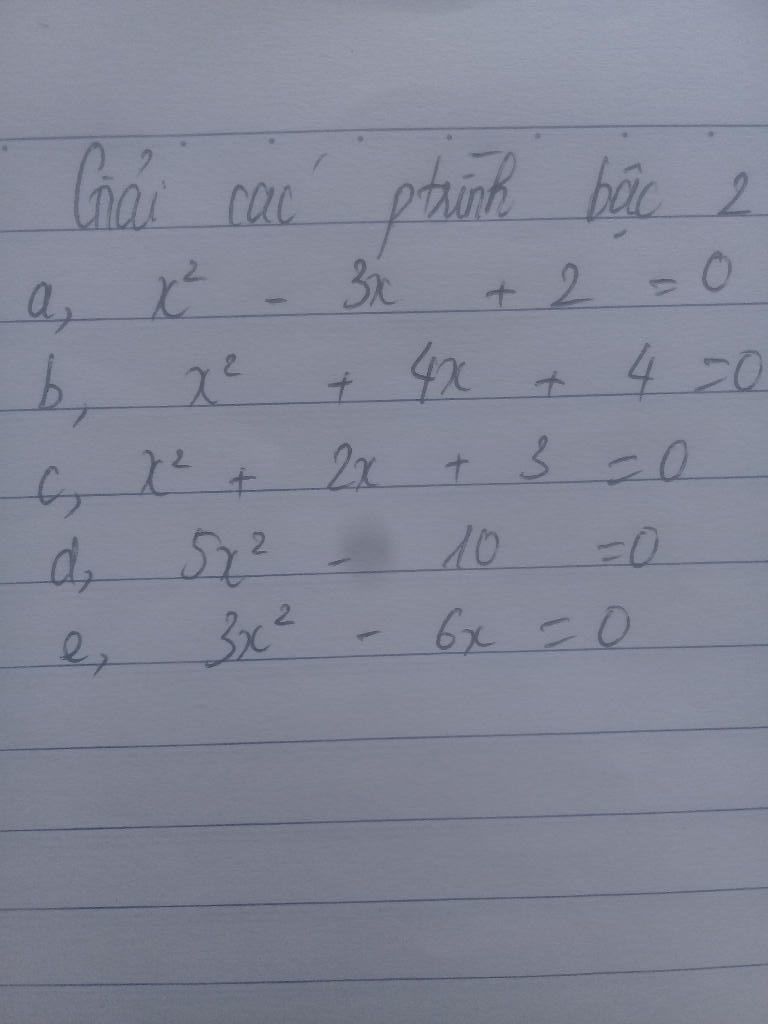 Giải các ptrình bậc 2
a, x² - 3x + 2 = 0
b, x² + 4x + 4 = 0
c, x² + 2x + 3 = 0
d, 5x² - 10 = 0
e, 3x² - 6x = 0